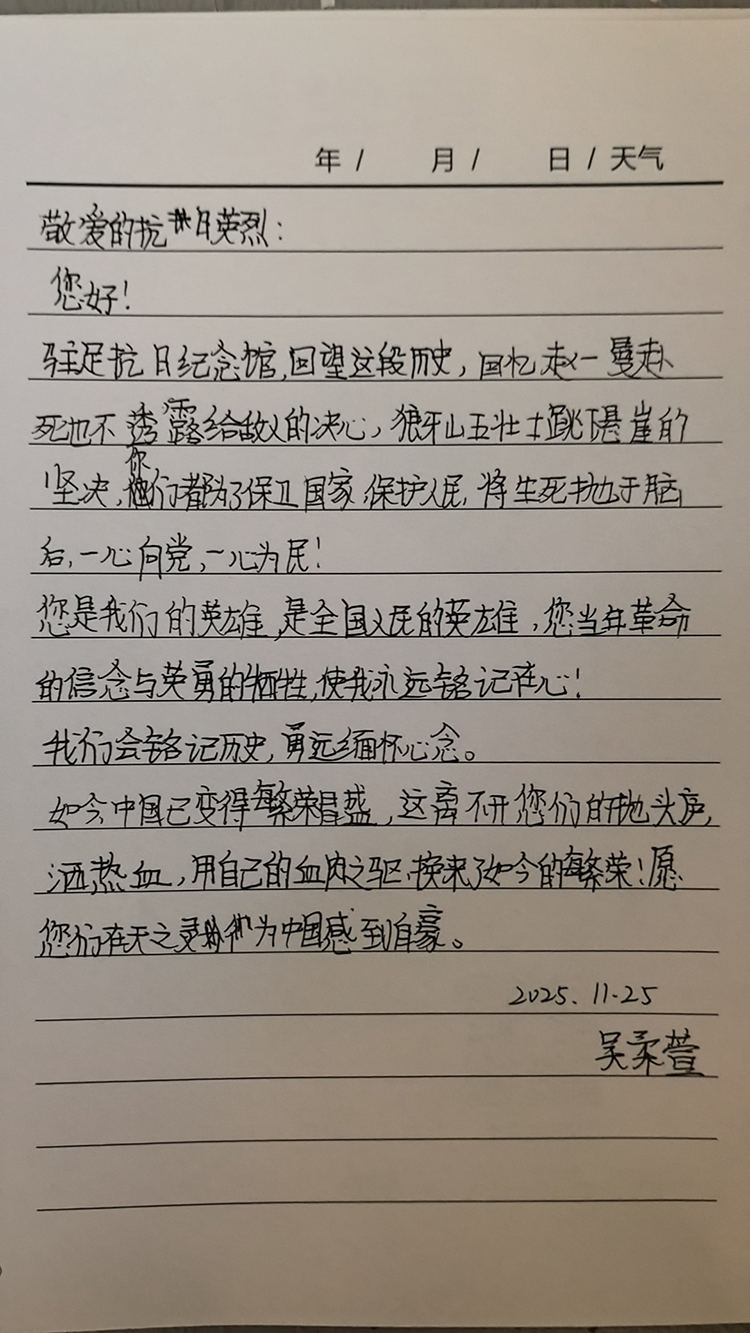 年 / 月 / 日 / 天气
敬爱的抗日英烈：
您好！
驻足抗日纪念馆，回望这段历史，回忆赵一曼赴
死也不透露给敌人的决心，狼牙山五壮士跳悬崖的
坚决，你们都为了保卫国家，保护人民，将生死抛于脑
后，一心向党，一心为民！
您是我们的英雄，是全国人民的英雄，您当年革命
的信念与英勇的牺牲，使我永远铭记在心！
我们会铭记历史，勇远缅怀心念。
如今中国已变得繁荣昌盛，这离不开您们的抛头庐，
洒热血，用自己的血肉之躯，换来了如今的繁荣！愿
您们在天之灵为中国感到自豪。
2025.11.25
吴柔萱